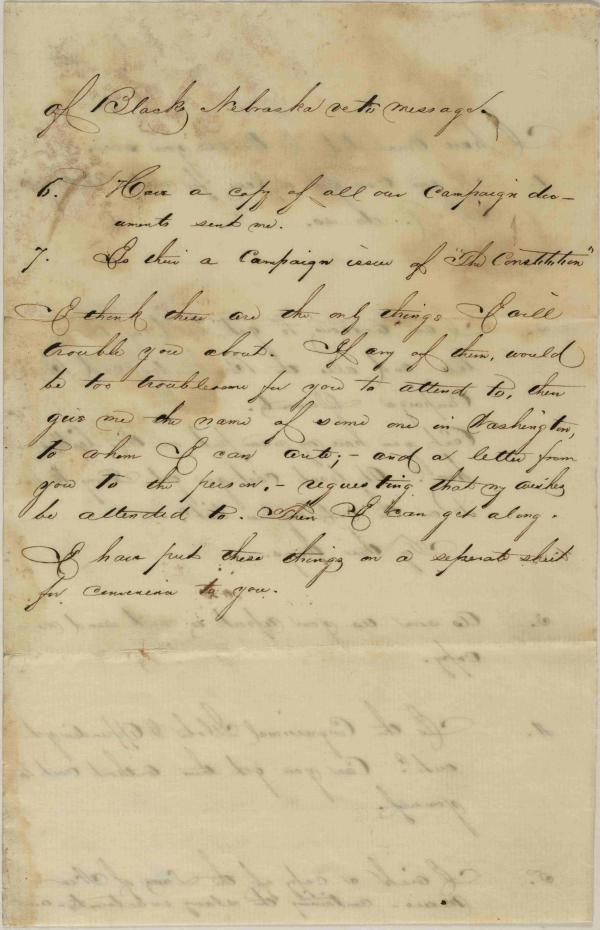 of Black, Nebraska veto message.
6. Have a copy of all our Campaign doc-
uments sent me.
7. Is their a Campaign issue of "The Constitution"
I think these are the only things I will
trouble you about. If any of them, would
be too troublesome for you to attend to, then
give me the name of some one in Washington,
to whom I can write; - and a letter from
you to the person, - requesting that my wishes
be attended to. Then I can get along.
I have put these things on a seperate sheet
for convenience to you.